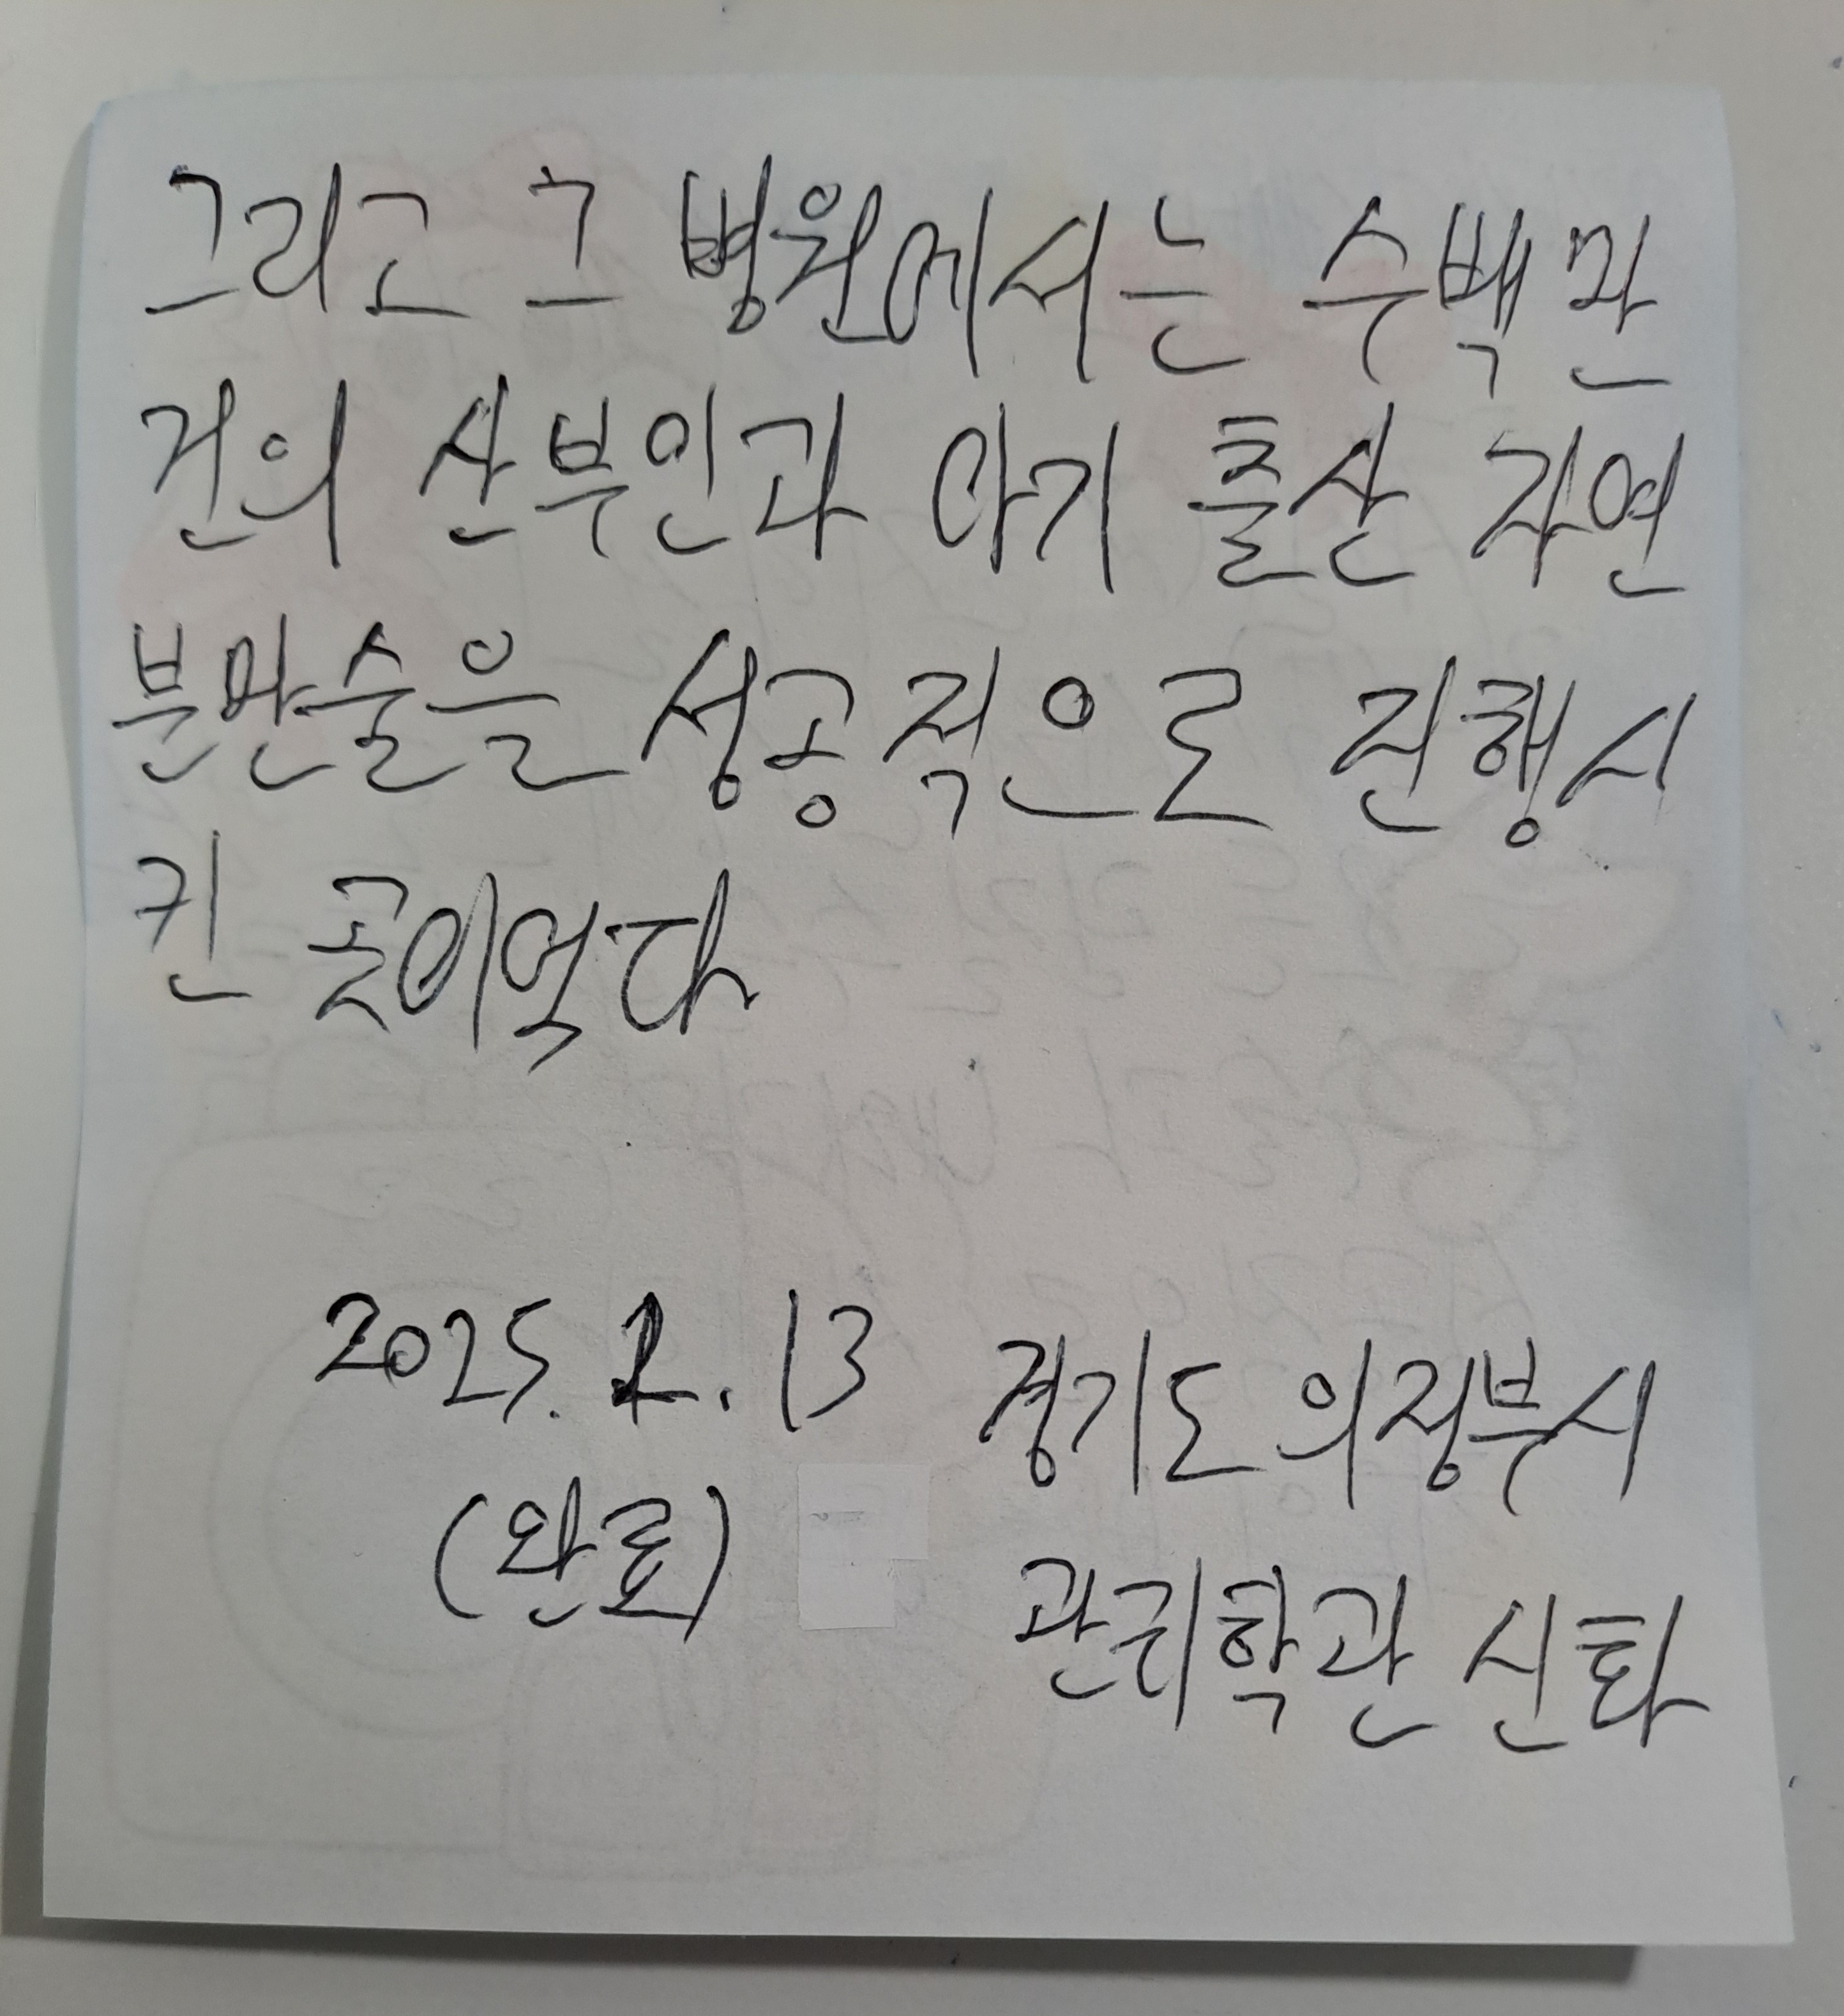 그리고 그 병원에서는 수백만
건의 산부인과 아기 출산 자연
분만술을 성공적으로 진행시
킨 곳이었다
2025. 2. 13 경기도 의정부시
(완료) 관리학관 신화